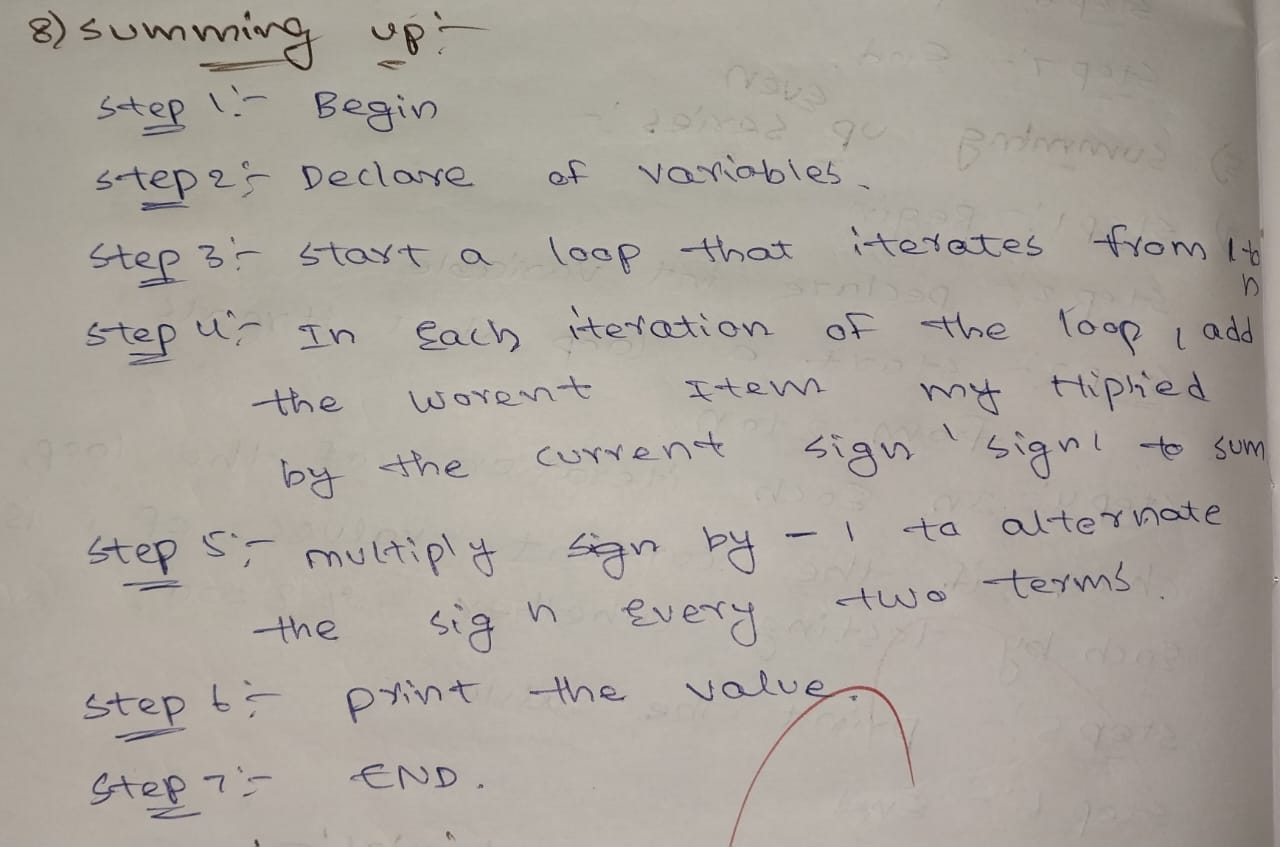 8) summing up :-
Step 1 :- Begin
Step 2 :- Declare of variables.
Step 3 :- start a loop that iterates from 1 to
n
Step 4 :- In Each iteration of the loop, add
the worent Item my ttiplied
by the current sign 'sign' to sum
Step 5 :- multiply sign by -1 to alternate
the sign Every two terms.
Step 6 :- print the value.
Step 7 :- END.